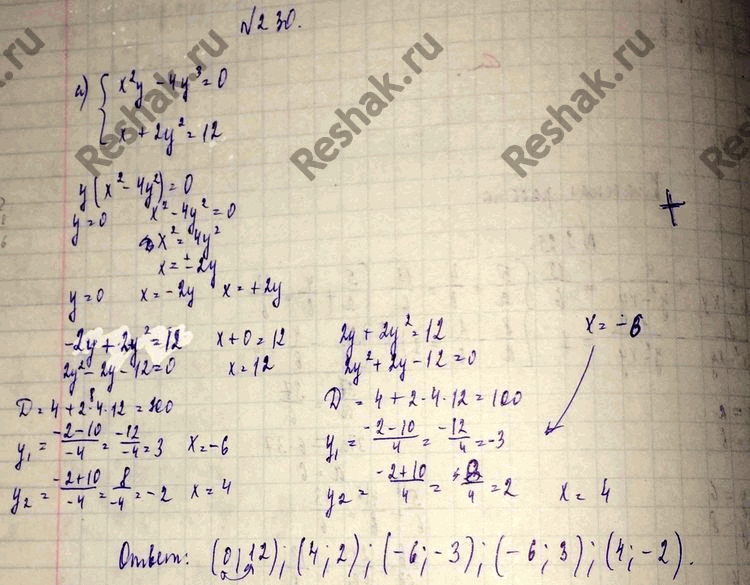 №230.
а) { x²y - 4y³ = 0
x + 2y² = 12
y(x² - 4y²) = 0
y = 0 x² - 4y² = 0
x² = 4y²
x = ± 2y
y = 0 x = -2y x = +2y
-2y + 2y² = 12 x + 0 = 12 2y + 2y² = 12 x = -6
2y² - 2y - 12 = 0 x = 12 2y² + 2y - 12 = 0
D = 4 + 2·4·12 = 100 D = 4 + 2·4·12 = 100
y₁ = (-2-10)/-4 = -12/-4 = 3 x = -6 y₁ = (-2-10)/4 = -12/4 = -3
y₂ = (-2+10)/-4 = 8/-4 = -2 x = 4 y₂ = (-2+10)/4 = 8/4 = 2 x = 4
Ответ: (0; 12); (4; 2); (-6; -3); (-6; 3); (4; -2).
+
Reshak.ru
Reshak.ru
Reshak.ru